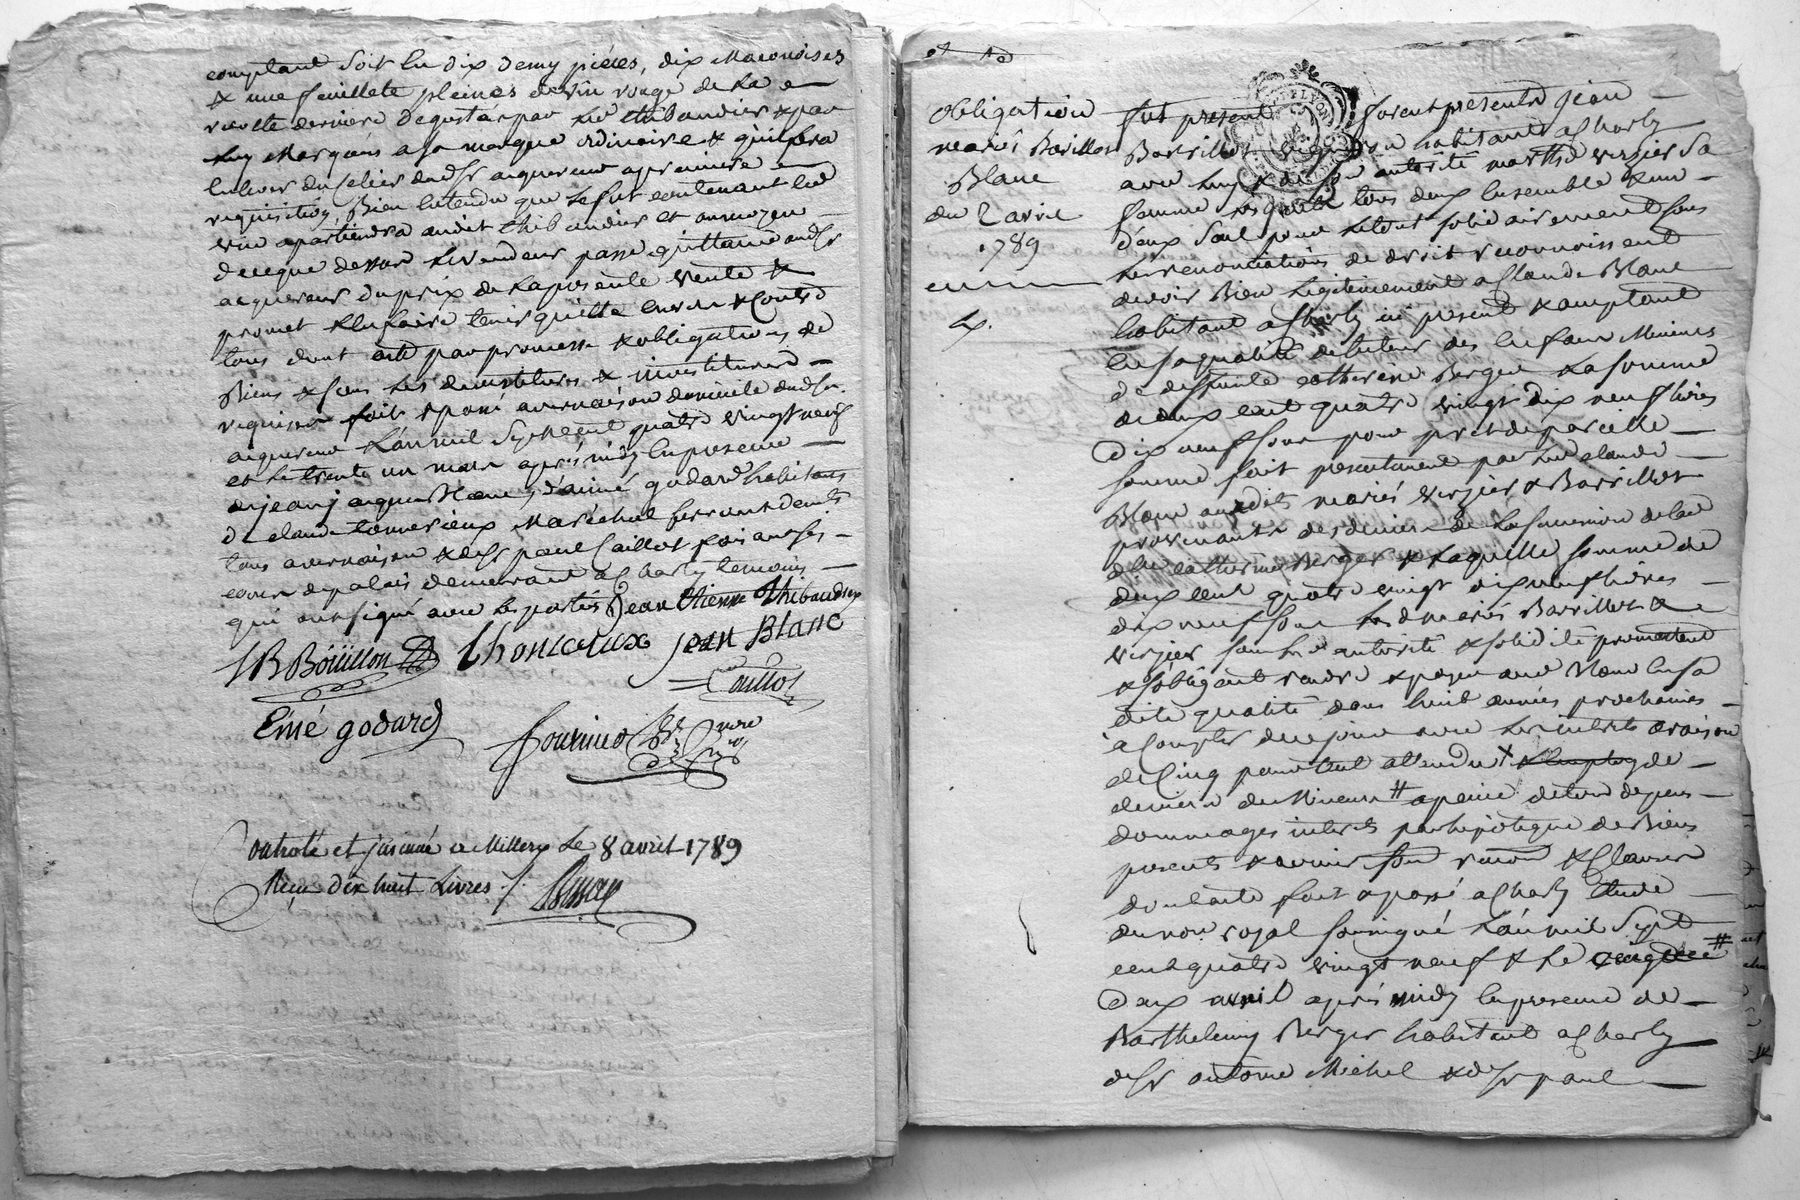 comptant soit en dix demy piéces, dix Maconoises
& une feuillete pleines de vin rouge de la
recolte derniere degusté par led thibaudier & par
luy Marqués a sa marque ordinaire & qu'il fera
enlever du celier dudsr acquereur a premiere
requisition, Bien entendu que le fut contenant led
vin apartiendra audit thibaudier et au moyen
de ce que dessus le vendeur passe quittance audsr
acquereur du prix de la presente vente &
promet l'en faire tenir quitte envers & contre
tous dont acte par promesse & obligations de
Biens & sous les devestitures & investitures
requises fait & passé a vernaison domicile dudsr
acquereur l'an mil sept cent quatre vingt neuf
et le trente un mars aprés midy en presence
de jean jacques Blanc, d'aimé godard habitans
de claude Marechal ferrant dem.t
tous a vernaison & de sr paul Caillot
cour de palais demeurant a Charly temoins
qui ont signé avec les parties Jean Etienne Thibaudier
JB Böüillon Thonnerieux jean Blanc
Caillot
Eimé godard
Controlé et jnsinué a Millery le 8 avril 1789
Reçu dix huit livres
obligation
mariés Barillot
Blanc
du 2 avril
1789
fut present furent presents jean
Barrillot vigneron habitant a Charly
avec luy & de son autorité marthe verzier sa
femme lesquels tous deux ensemble & un
d'eux seul pour le tout solidairement sous
les renonciations de droit reconnoissent
devoir Bien legitimement a Claude Blanc
habitant a Charly ici present & acceptant
en sa qualité de tuteur des enfans Mineurs
de deffunte catherine Berger la somme
de deux cent quatre vingt dix neuf livres
dix neuf sous pour pret de pareille
somme fait presentement par led claude
Blanc auxdits mariés verzier & Barrillot
provenante des deniers de la succession de lad
dte catherine Berger & laquelle somme de
deux cent quatre vingt dix neuf livres
dix neuf sous lesd mariés Barrillot &
verzier sous led autorité & solidité promettent
& s'obligent rendre & payer aud Blanc en sa
dite qualité dans huit années prochaines
a Compter de ce jour avec les interets a raison
de Cinq pour cent attendu l'employ de
deniers de Mineurs # a peine de tous depens
dommages interets par hipoteque de Biens
presents & avenir sous renon & Clauses
dont acte fait & passé a Charly etude
du nore royal soussigné l'an mil sept
cent quatre vingt neuf & le #
deux avril aprés midy en presence de
Barthelemy Berger habitant a Charly
de sr antoine Michel & de sr paul